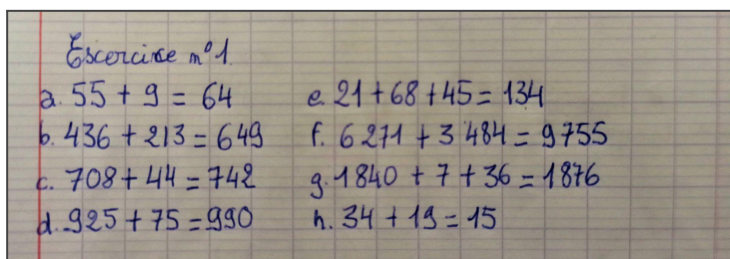 Exercice n°1
a. 55 + 9 = 64
b. 436 + 213 = 649
c. 708 + 44 = 742
d. 925 + 75 = 990
e. 21 + 68 + 45 = 134
f. 6 271 + 3 484 = 9755
g. 1840 + 7 + 36 = 1876
h. 34 + 19 = 15